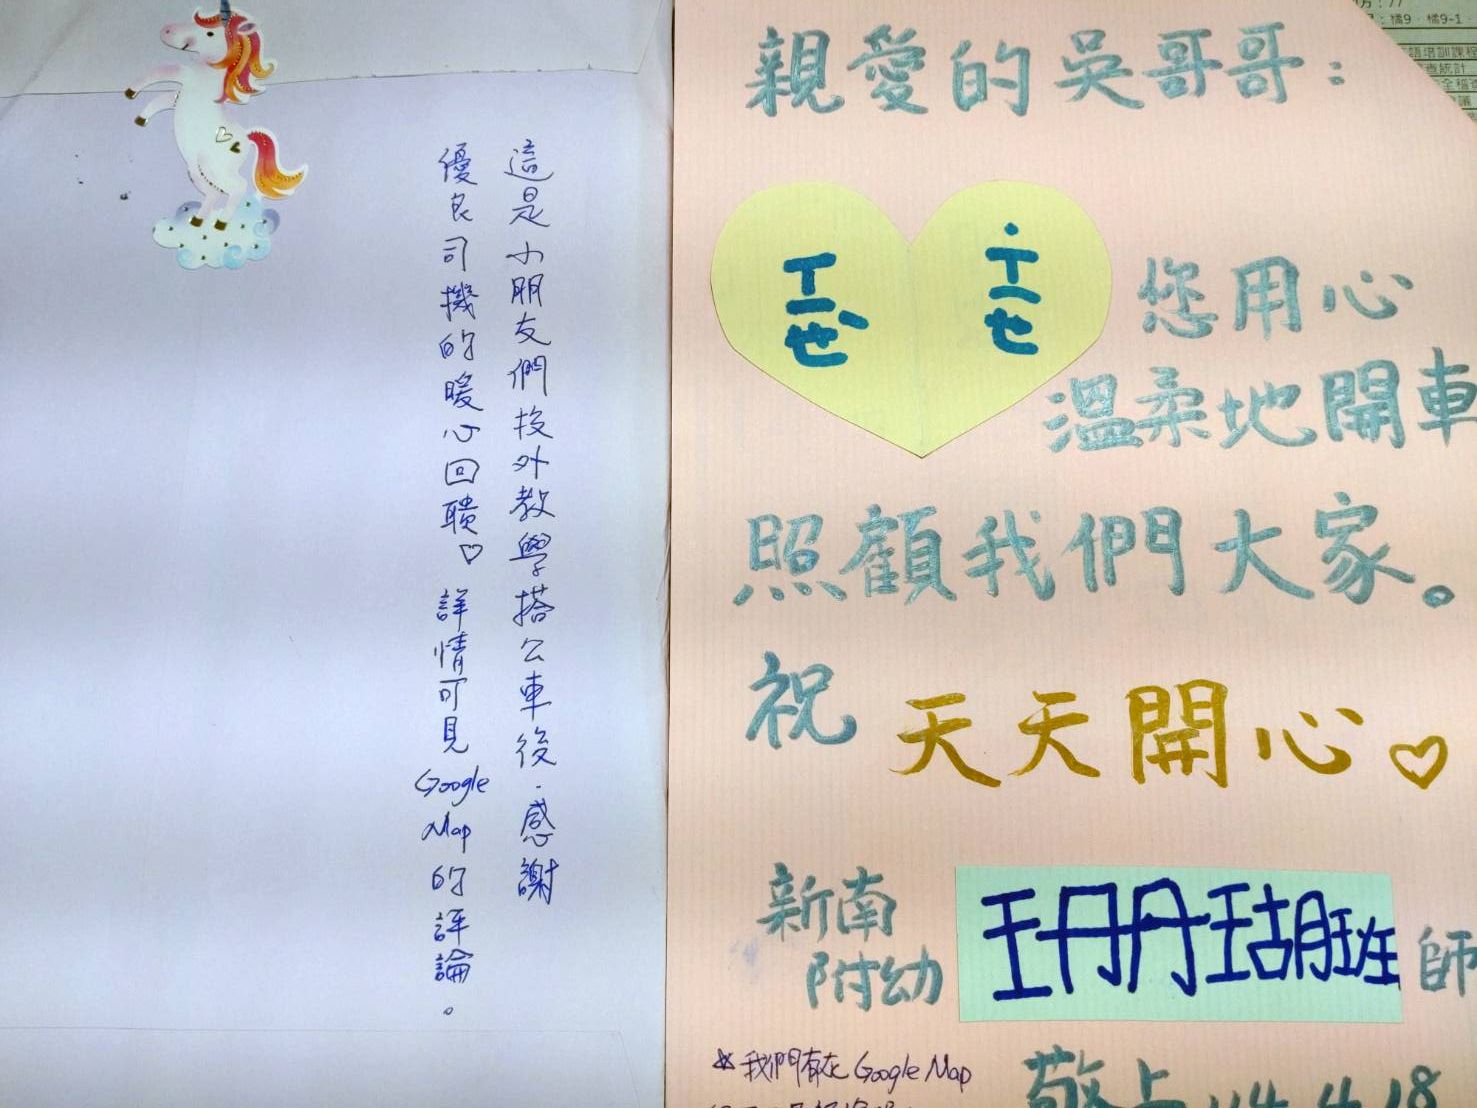 這是小朋友們校外教學搭公車後.感謝
優良司機的暖心回饋♡ 詳情可見Google Map的評論。
親愛的吳哥哥：
ㄒㄧㄝˋ ˙ㄒㄧㄝ 您用心
溫柔地開車
照顧我們大家。
祝 天天開心♡
新南
附幼 珊瑚班 師
敬上 114.4.18
*我們有在 Google Map